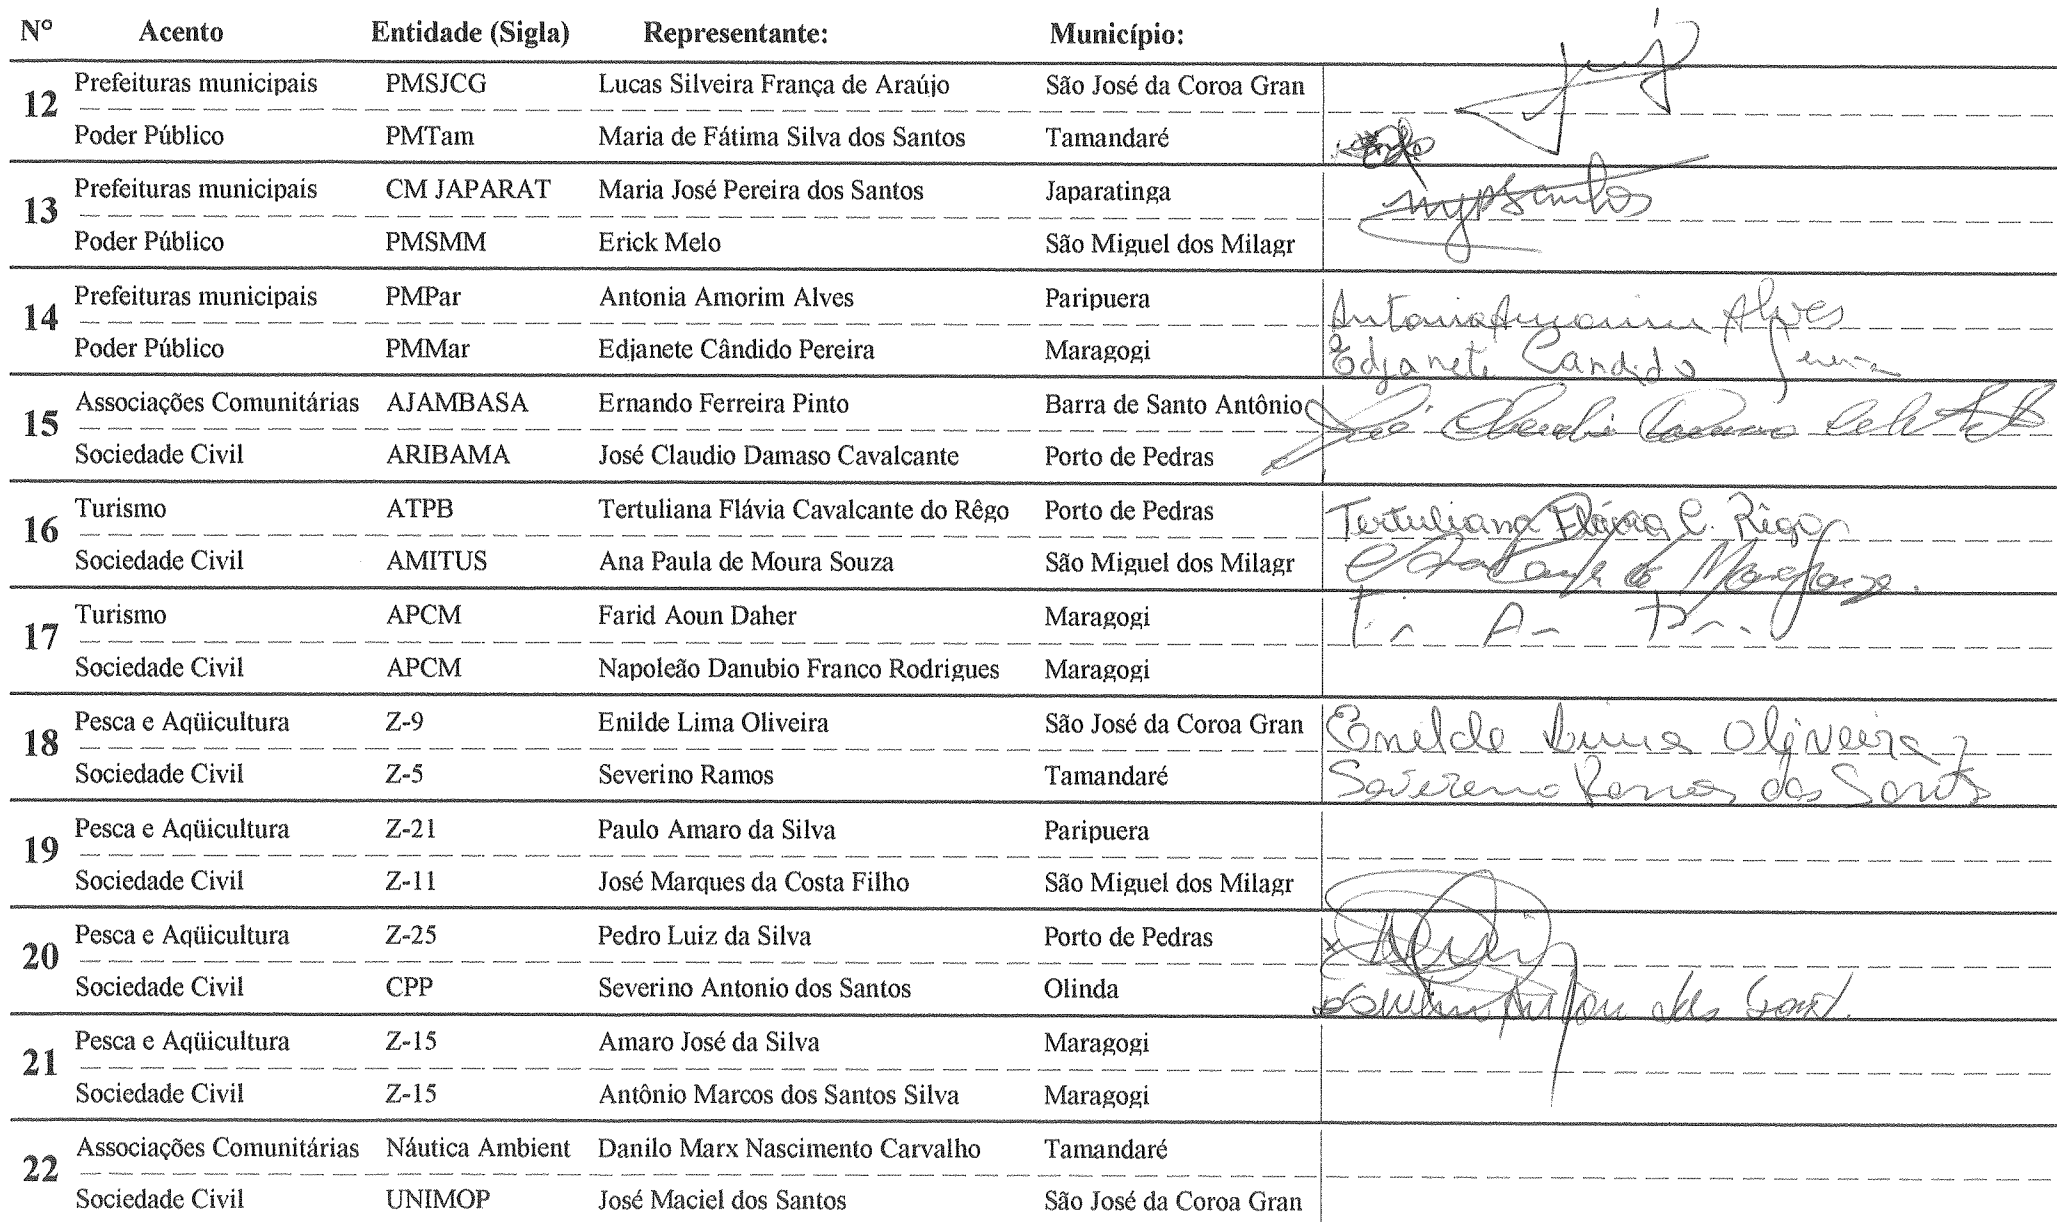 Nº Acento Entidade (Sigla) Representante: Município:
12
Prefeituras municipais PMSJCG Lucas Silveira França de Araújo São José da Coroa Gran
Poder Público PMTam Maria de Fátima Silva dos Santos Tamandaré
13
Prefeituras municipais CM JAPARAT Maria José Pereira dos Santos Japaratinga
Poder Público PMSMM Erick Melo São Miguel dos Milagr
14
Prefeituras municipais PMPar Antonia Amorim Alves Paripuera Antonia Amorim Alves
Poder Público PMMar Edjanete Cândido Pereira Maragogi Edjanete Candido
15
Associações Comunitárias AJAMBASA Ernando Ferreira Pinto Barra de Santo Antônio
Sociedade Civil ARIBAMA José Claudio Damaso Cavalcante Porto de Pedras
16
Turismo ATPB Tertuliana Flávia Cavalcante do Rêgo Porto de Pedras Tertuliana Flávia C. Rêgo
Sociedade Civil AMITUS Ana Paula de Moura Souza São Miguel dos Milagr
17
Turismo APCM Farid Aoun Daher Maragogi
Sociedade Civil APCM Napoleão Danubio Franco Rodrigues Maragogi
18
Pesca e Aqüicultura Z-9 Enilde Lima Oliveira São José da Coroa Gran Enilde Lima Oliveira
Sociedade Civil Z-5 Severino Ramos Tamandaré Severeno Ramos dos Santos
19
Pesca e Aqüicultura Z-21 Paulo Amaro da Silva Paripuera
Sociedade Civil Z-11 José Marques da Costa Filho São Miguel dos Milagr
20
Pesca e Aqüicultura Z-25 Pedro Luiz da Silva Porto de Pedras
Sociedade Civil CPP Severino Antonio dos Santos Olinda
21
Pesca e Aqüicultura Z-15 Amaro José da Silva Maragogi
Sociedade Civil Z-15 Antônio Marcos dos Santos Silva Maragogi
22
Associações Comunitárias Náutica Ambient Danilo Marx Nascimento Carvalho Tamandaré
Sociedade Civil UNIMOP José Maciel dos Santos São José da Coroa Gran